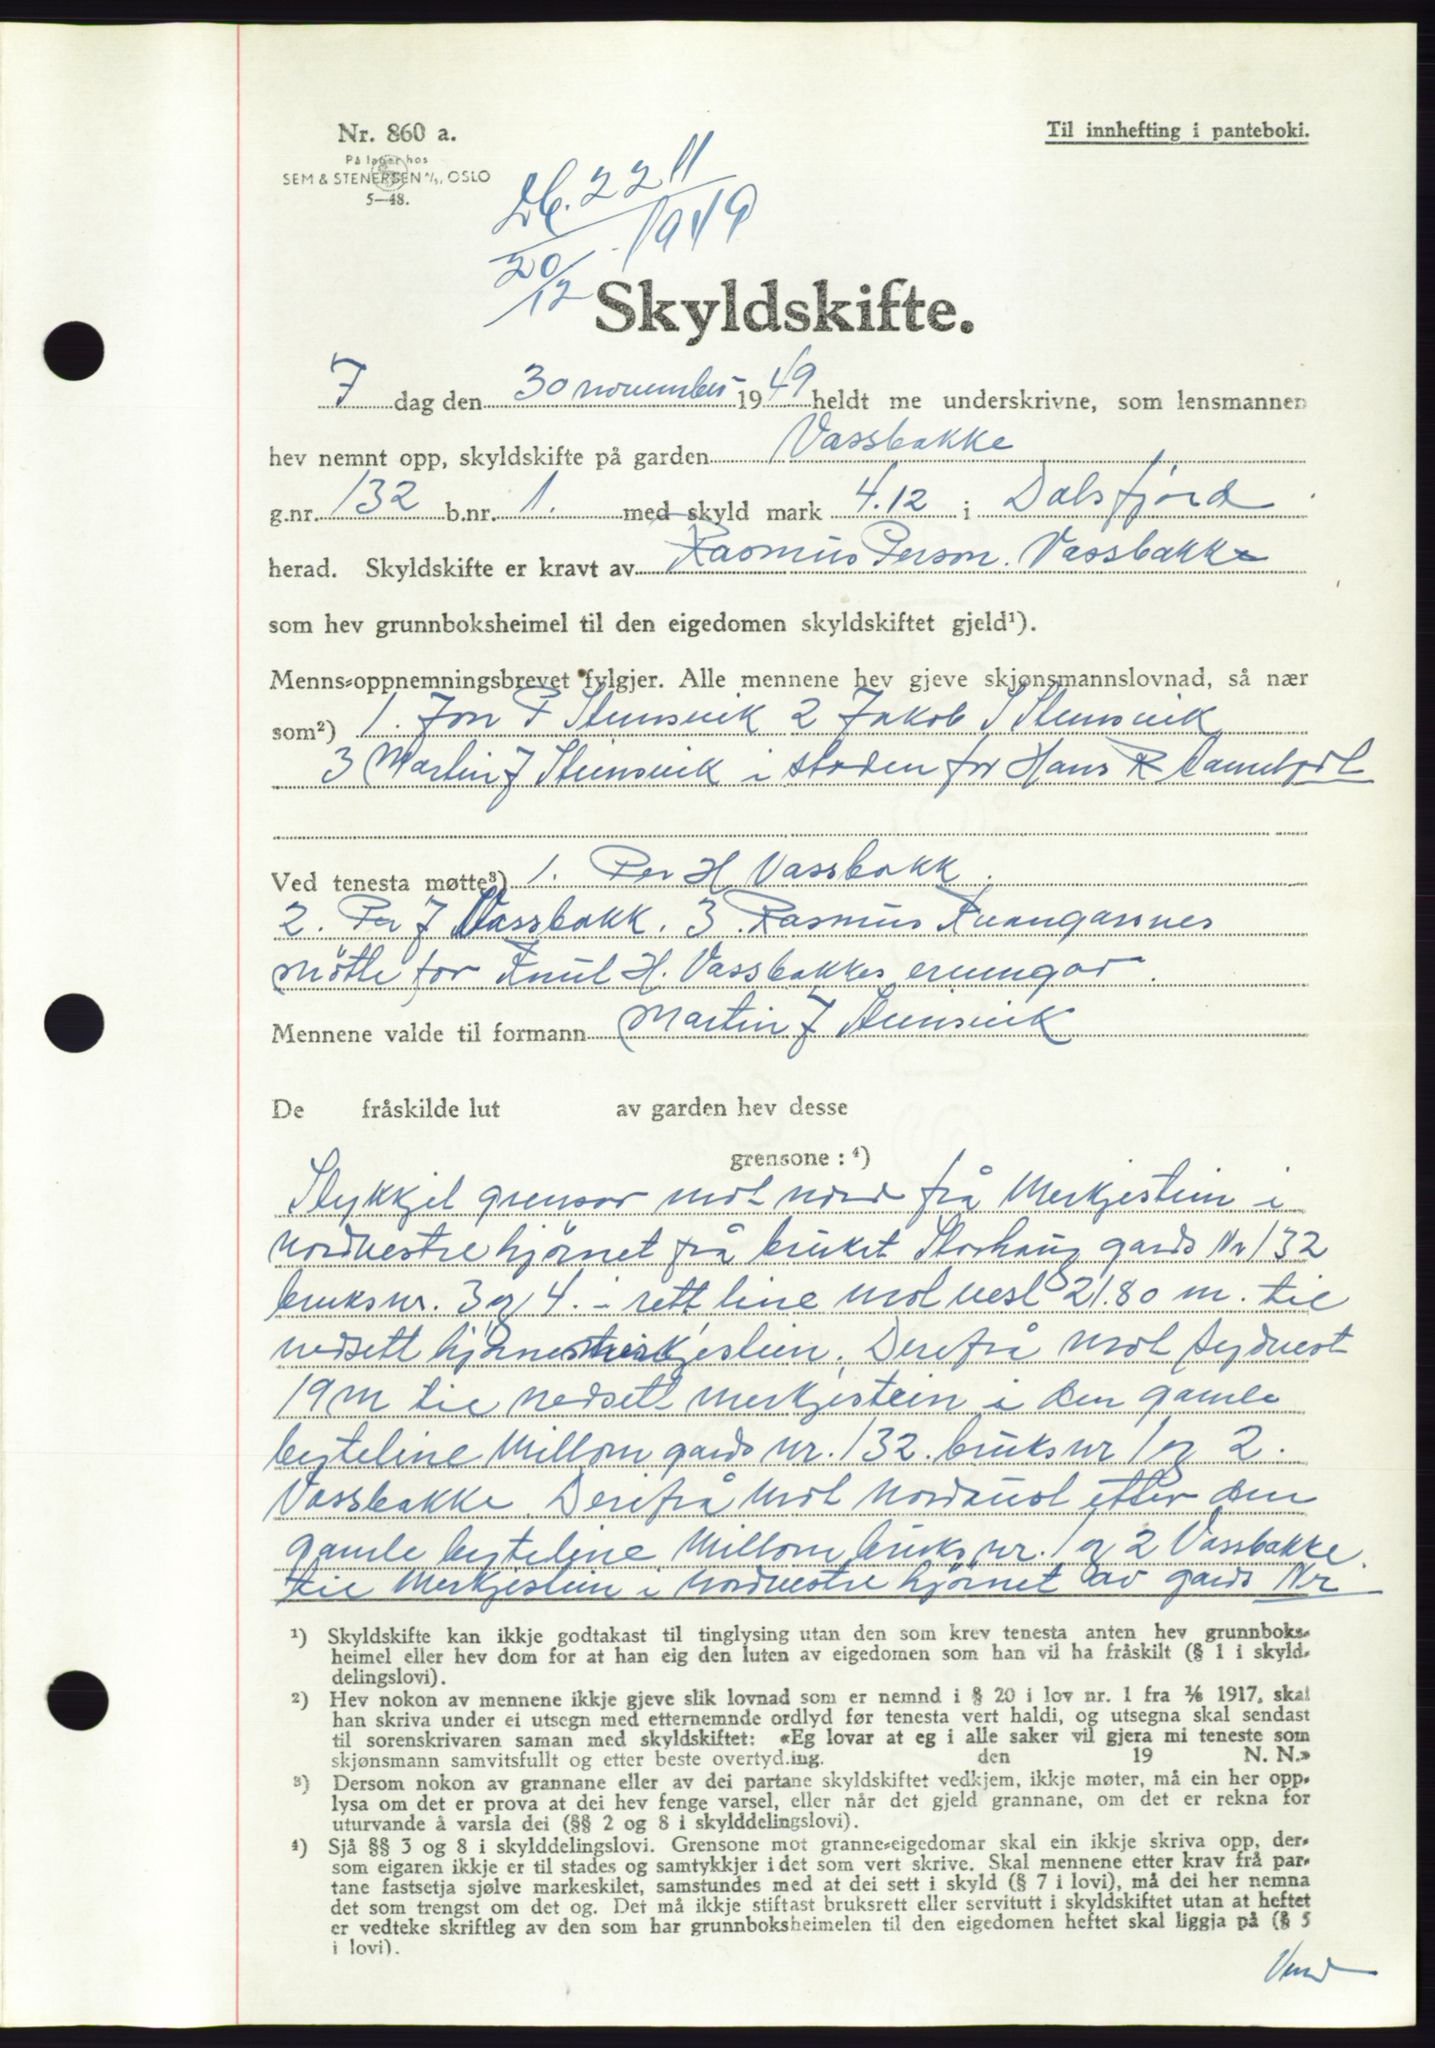 Nr. 860 a.
På lager hos
SEM & STENERSEN A/S, OSLO
5—48.
Til innhefting i panteboki.
Db. 2211
20/12 1949
Skyldskifte.
I dag den 30 november 1949 heldt me underskrivne, som lensmannen
hev nemnt opp, skyldskifte på garden Vassbakke
g.nr. 132 b.nr. 1. med skyld mark 4.12 i Dalsfjord
herad. Skyldskifte er kravt av Rasmus Person. Vassbakke
som hev grunnboksheimel til den eigedomen skyldskiftet gjeld¹).
Menns-oppnemningsbrevet fylgjer. Alle mennene hev gjeve skjønsmannslovnad, så nær
som²) 1. Jon P Steinsvik 2 Jakob J Steinsvik
3 Martin J Steinsvik i staden for Hans R
Ved tenesta møtte³) 1. Per H Vassbakk.
2. Per J Vassbakk. 3. Rasmus Kvangarsnes
møtte for Knut H. Vassbakkes ervingar.
Mennene valde til formann Martin J Steinsvik
De fråskilde lut av garden hev desse
grensone : ⁴)
Stykkjet grensar mot nord frå Merkjestein i
nordvestre hjørnet frå bruket Storhaug gards Nr 132
bruksnr. 3 og 4. - rett line mot vest 21.80 m. til
nedsett hjørnemerkjestein. Derifrå mot sydvest
19 m til nedsett merkjestein i den gamle
byteline Millom gards nr. 132. bruks nr 1 og 2.
Vassbakke. Derifrå mot Nordaust etter den
gamle byteline Millom bruks nr. 1 og 2 Vassbakke.
til Merkjestein i Nordvestre hjørnet av gards Nr
¹) Skyldskifte kan ikkje godtakast til tinglysing utan den som krev tenesta anten hev grunnboks-
heimel eller hev dom for at han eig den luten av eigedomen som han vil ha fråskilt (§ 1 i skyld-
delingslovi).
²) Hev nokon av mennene ikkje gjeve slik lovnad som er nemnd i § 20 i lov nr. 1 fra 1/6 1917, skal
han skriva under ei utsegn med etternemnde ordlyd før tenesta vert haldi, og utsegna skal sendast
til sorenskrivaren saman med skyldskiftet: «Eg lovar at eg i alle saker vil gjera mi teneste som
skjønsmann samvitsfullt og etter beste overtyding. den 19 N. N.»
³) Dersom nokon av grannane eller av dei partane skyldskiftet vedkjem, ikkje møter, må ein her opp-
lysa om det er prova at dei hev fenge varsel, eller når det gjeld grannane, om det er rekna for
uturvande å varsla dei (§§ 2 og 8 i skylddelingslovi).
⁴) Sjå §§ 3 og 8 i skylddelingslovi. Grensone mot granne-eigedomar skal ein ikkje skriva opp, der-
som eigaren ikkje er til stades og samtykkjer i det som vert skrive. Skal mennene etter krav frå par-
tane fastsetja sjølve markeskilet, samstundes med at dei sett i skyld (§ 7 i lovi), må dei her nemna
det som trengst om det og. Det må ikkje stiftast bruksrett eller servitutt i skyldskiftet utan at heftet
er vedteke skriftleg av den som har grunnboksheimelen til den eigedomen heftet skal liggja på (§ 5
i lovi).
Vend